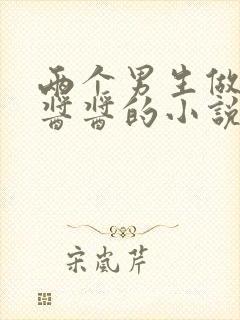 两个男生做
酱酱的小说
宋岚芹